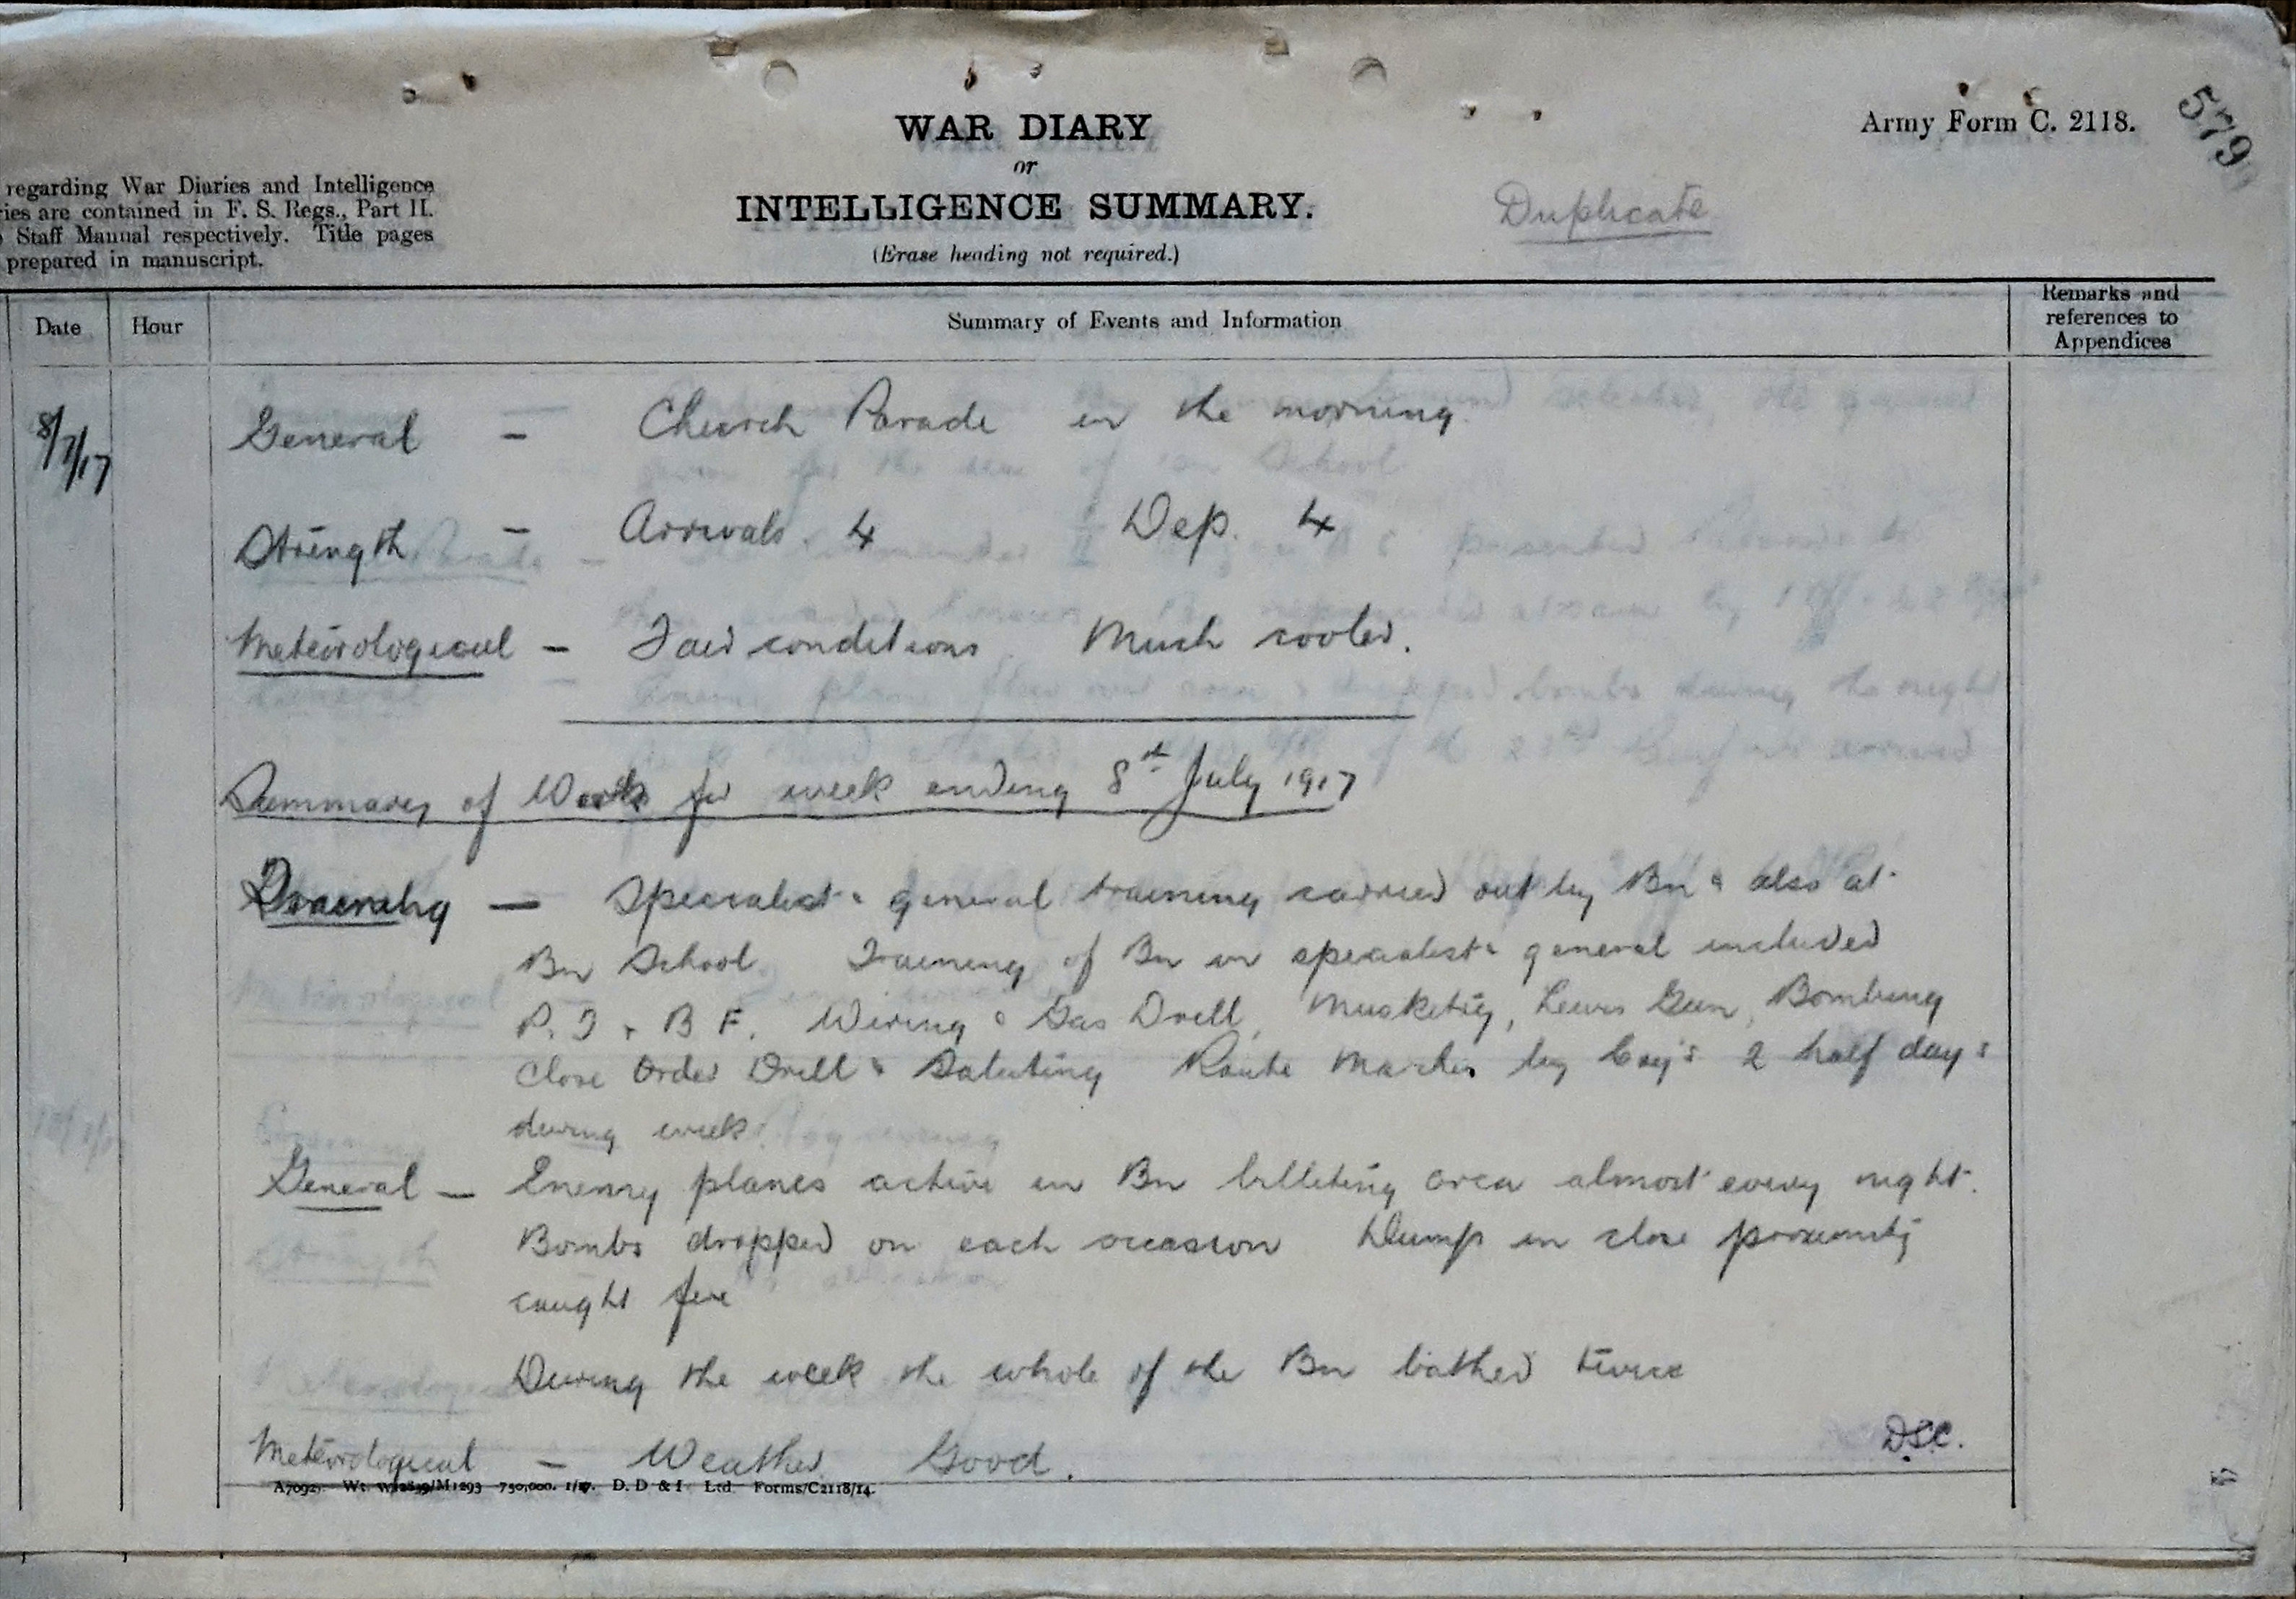 WAR DIARY
or
INTELLIGENCE SUMMARY.
(Erase heading not required.)
Army Form C. 2118.
579
Duplicate
regarding War Diaries and Intelligence
ries are contained in F. S. Regs., Part II.
Staff Manual respectively. Title pages
prepared in manuscript.
Date Hour Summary of Events and Information Remarks and references to Appendices
8/7/17 General - Church Parade in the morning.
Strength - Arrivals. 4 Dep. 4
Meteorological - Fair conditions. Much cooler.
Summary of Work for week ending 8th July 1917
Training - Specialist & general training carried out by Bn & also at
Bn School. Training of Bn in specialist & general included
P. T & B F. Wiring & Gas Drill, Musketry, Lewis Gun, Bombing
Close Order Drill & Saluting Route Marches by Coy's 2 half days
during week.
General - Enemy planes active in Bn billeting area almost every night.
Bombs dropped on each occasion Dump in close proximity
caught fire
During the week the whole of the Bn bathed twice
Meteorological - Weather Good.
DSC.
A7092. Wt. W12839/M1293 750,000. 1/17. D. D & L Ltd Forms/C2118/14.